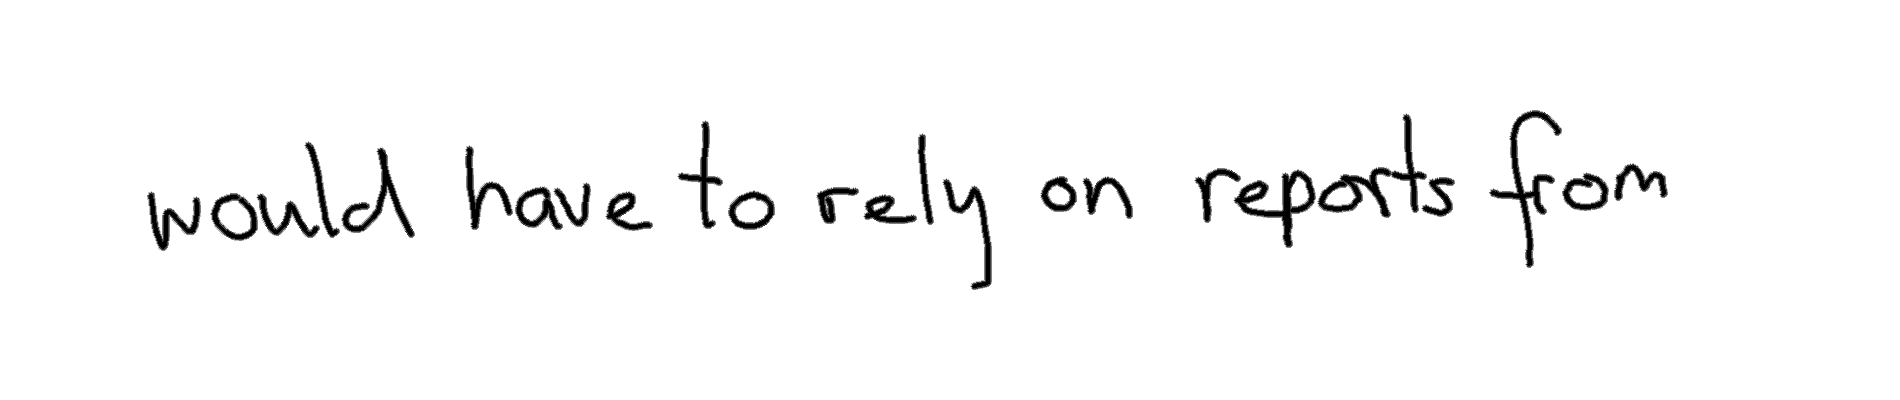 would have to rely on reports from